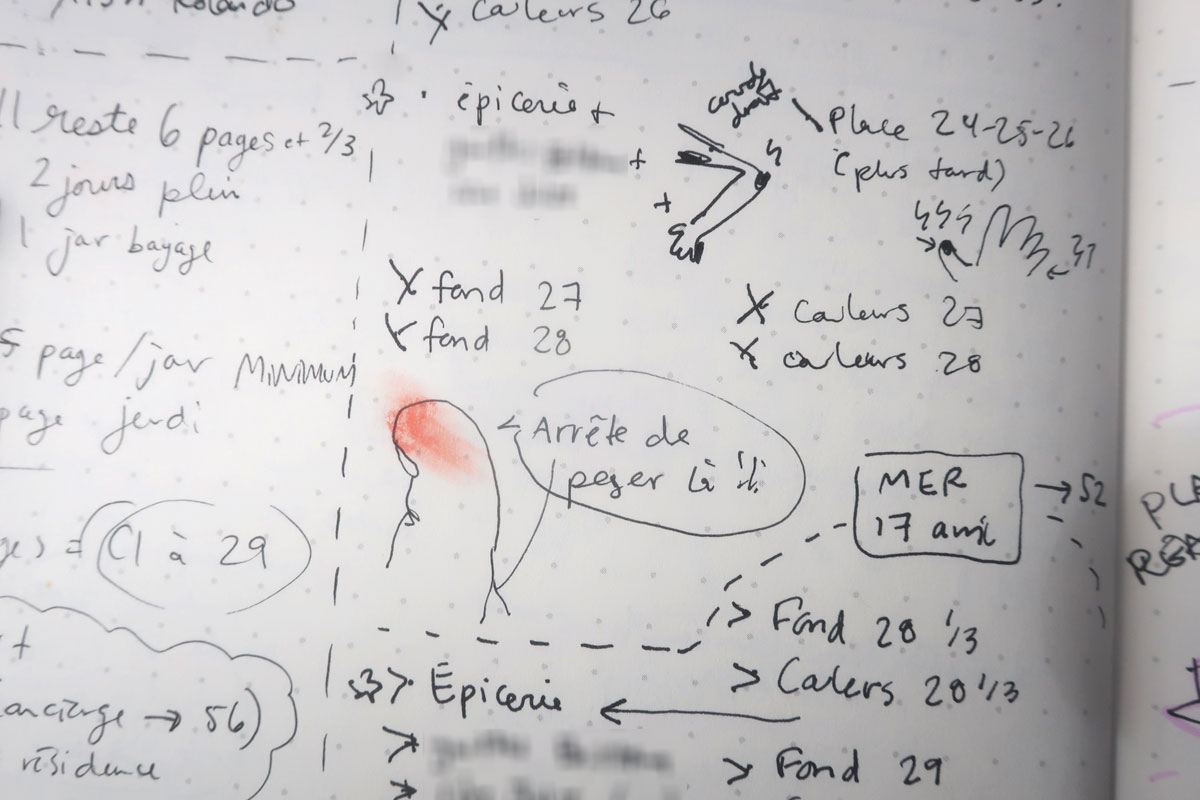 Rolando
X Couleurs 26
Il reste 6 pages et 2/3
2 jours plein
1 jour bagage
5 page/jour MINIMUM
page jeudi
C1 à 29
→ 56)
résidence
épicerie +
+
+
Place 24-25-26
(plus tard)
X fond 27
X fond 28
X couleurs 27
X couleurs 28
Arrête de
peser là !!!
MER
17 avril
→ 52
> Fond 28 1/3
> Couleurs 28 1/3
> Épicerie
←
> Fond 29